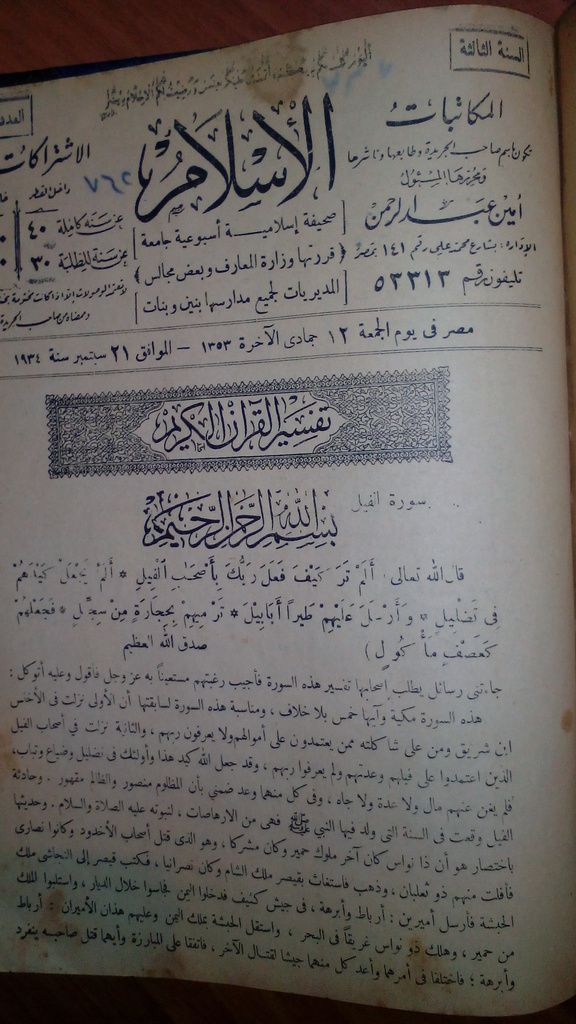 السنة الثالثة
اليوم أكملت لكم دينكم وأتممت عليكم نعمتي ورضيت لكم الإسلام دينا
العدد
المكاتبات
تكون باسم صاحب الجريدة وطابعها وناشرها
ومحررها المسئول
أمين عبد الرحمن
الإدارة: بشارع محمد على رقم ١٤١ بمصر
تليفون رقم ٥٣٣١٣
الإسلام
صحيفة إسلامية أسبوعية جامعة
قررتها وزارة المعارف وبعض مجالس
المديريات لجميع مدارسها بنين وبنات
الاشتراكات
داخل القطر
٧٦٢
عن سنة كاملة ٤٠
عن سنة للطلبة ٣٠
لا تعتبر الوصولات إلا إذا كانت مختومة
وممضاة من صاحب الجريدة
مصر فى يوم الجمعة ١٢ جمادى الآخرة ١٣٥٣ – الموافق ٢١ سبتمبر سنة ١٩٣٤
تفسير القرآن الكريم
سورة الفيل
بسم الله الرحمن الرحيم
قال الله تعالى: أَلَمْ تَرَ كَيْفَ فَعَلَ رَبُّكَ بِأَصْحَابِ الْفِيلِ * أَلَمْ يَجْعَلْ كَيْدَهُمْ
فِى تَضْلِيلٍ * وَأَرْسَلَ عَلَيْهِمْ طَيْراً أَبَابِيلَ * تَرْمِيهِمْ بِحِجَارَةٍ مِنْ سِجِّيلٍ * فَجَعَلَهُمْ
كَعَصْفٍ مَأْكُولٍ) صدق الله العظيم
جاءتنى رسائل يطلب أصحابها تفسير هذه السورة فأجيب رغبتهم مستعيناً به عز وجل فأقول وعليه أتوكل:
هذه السورة مكية وآيها خمس بلا خلاف، ومناسبة هذه السورة لسابقتها أن الأولى نزلت فى الأخنس
ابن شريق ومن على شاكلته ممن يعتمدون على أموالهم ولا يعرفون ربهم، والثانية نزلت في أصحاب الفيل
الذين اعتمدوا على فيلهم وعدتهم ولم يعرفوا ربهم، وقد جعل الله كيد هذا وأولئك فى تضليل وضياع وتباب،
فلم يغن عنهم مال ولا عدة ولا جاه، وفى كل منهما وعد ضمنى بأن المظلوم منصور والظالم مقهور. وحادثة
الفيل وقعت فى السنة التى ولد فيها النبي ﷺ فهى من الارهاصات، لنبوته عليه الصلاة والسلام. وحديثها
باختصار هو أن ذا نواس كان آخر ملوك حمير وكان مشركا، وهو الذى قتل أصحاب الأخدود وكانوا نصارى
فأفلت منهم ذو ثعلبان، وذهب فاستغاث بقيصر ملك الشام وكان نصرانيا، فكتب قيصر إلى النجاشى ملك
الحبشة فأرسل أميرين: أرباط وأبرهة، فى جيش كثيف فدخلوا اليمن فجاسوا خلال الديار، واستلبوا الملك
من حمير، وهلك ذو نواس غريقاً فى البحر، واستقل الحبشة بملك اليمن وعليهم هذان الأميران: أرباط
وأبرهة؛ فاختلفا فى أمرهما وأعد كل منهما جيشا لقتال الآخر، فاتفقا على المبارزة وأيهما قتل صاحبه ينفرد